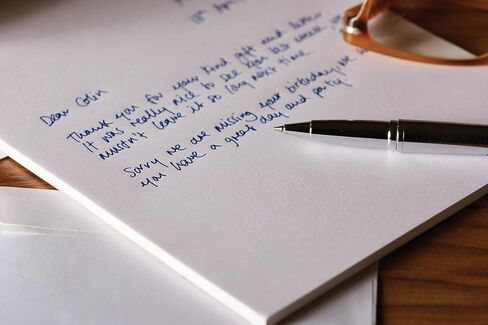 Dear Colin
Thank you for your kind gift and letter
It was really nice to see you last week, we
mustn't leave it so long next time.
Sorry we are missing your birthday, we
you have a great day and party!